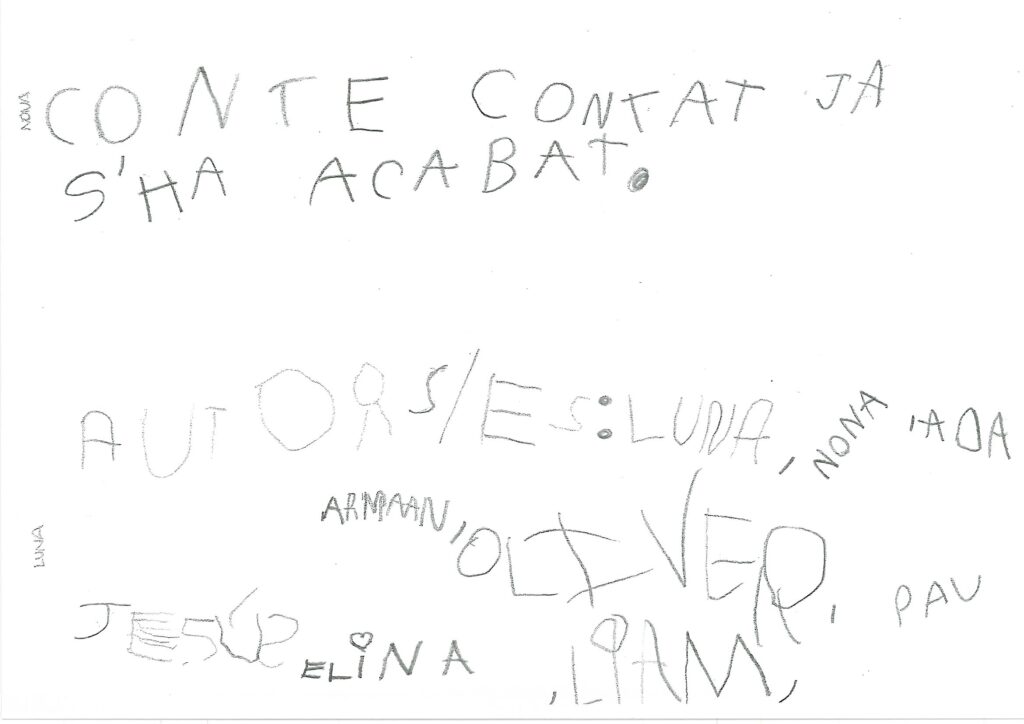 NONA
CONTE CONTAT JA
S'HA ACABAT.
AUTORS/ES: LUNA, NONA, ADA
ARMAAN, OLIVER, PAU
LUNA
JESUP ELINA, LIAM,